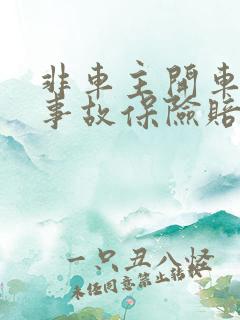 非車主開車
事故保險賠
一只丑八怪
未经同意禁止转载